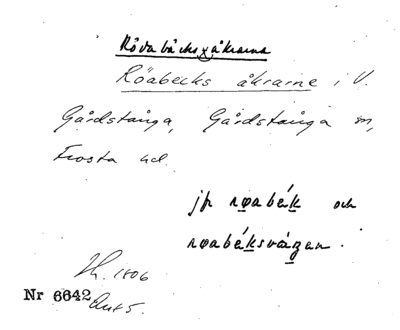 Röva bäcks åkrarna
Röabecks åkrarne i V.
Gårdstånga, Gårdstånga sn,
Frosta hd.
jfr røabék och
røabéksváŋen.
1806
Nr 6642